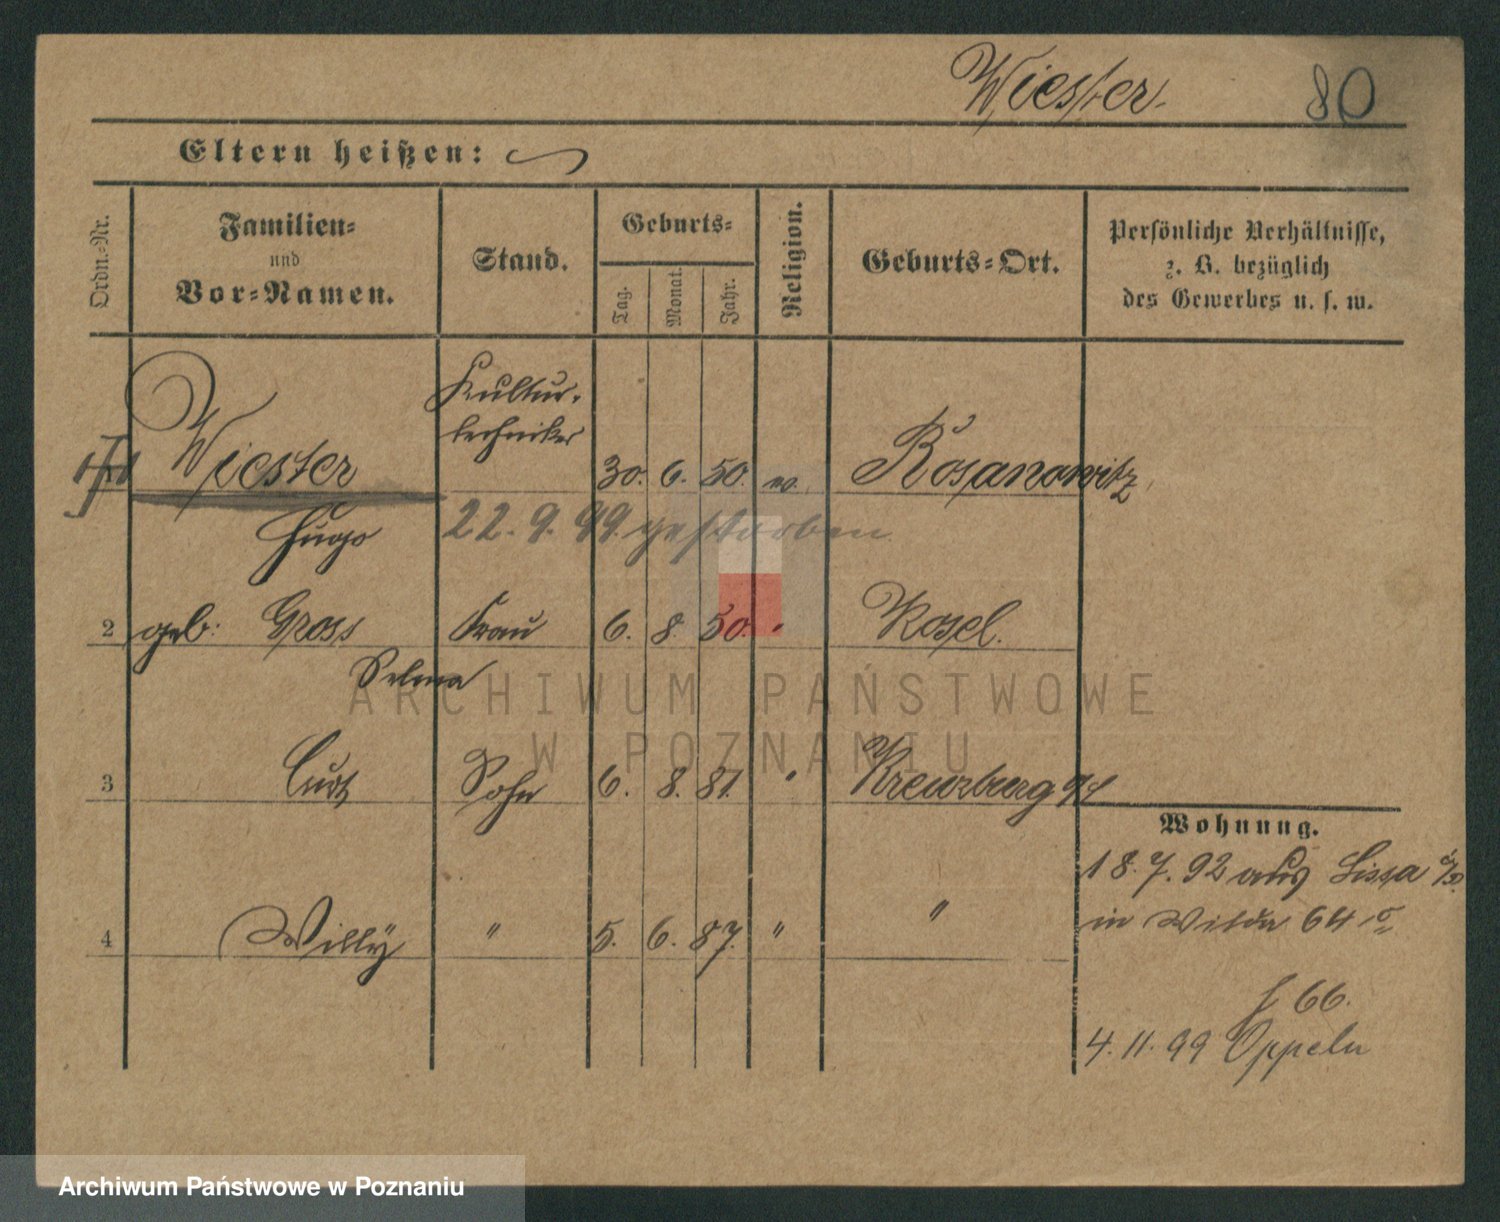 Wiester. 80
Eltern heißen:
Ordn.-Nr.
Familien-
und
Vor-Namen.
Stand.
Geburts-
Tag.
Monat.
Jahr.
Religion.
Geburts-Ort.
Persönliche Verhältnisse,
z. B. bezüglich
des Gewerbes u. s. w.
Kultur-
techniker
Wiester 30. 6. 50. Rosanowitz
Hugo 22. 9. 99 gestorben
2 geb: Gross Frau 6. 8. 50. " Kosel.
Selma
3 Curt Sohn 6. 8. 81. " Kreuzburg
4 Willy " 5. 6. 87. " "
Wohnung.
18. 7. 92 aus Lissa
in Wilda 64
66.
4. 11. 99 Oppeln
ARCHIWUM PAŃSTWOWE
W POZNANIU
Archiwum Państwowe w Poznaniu